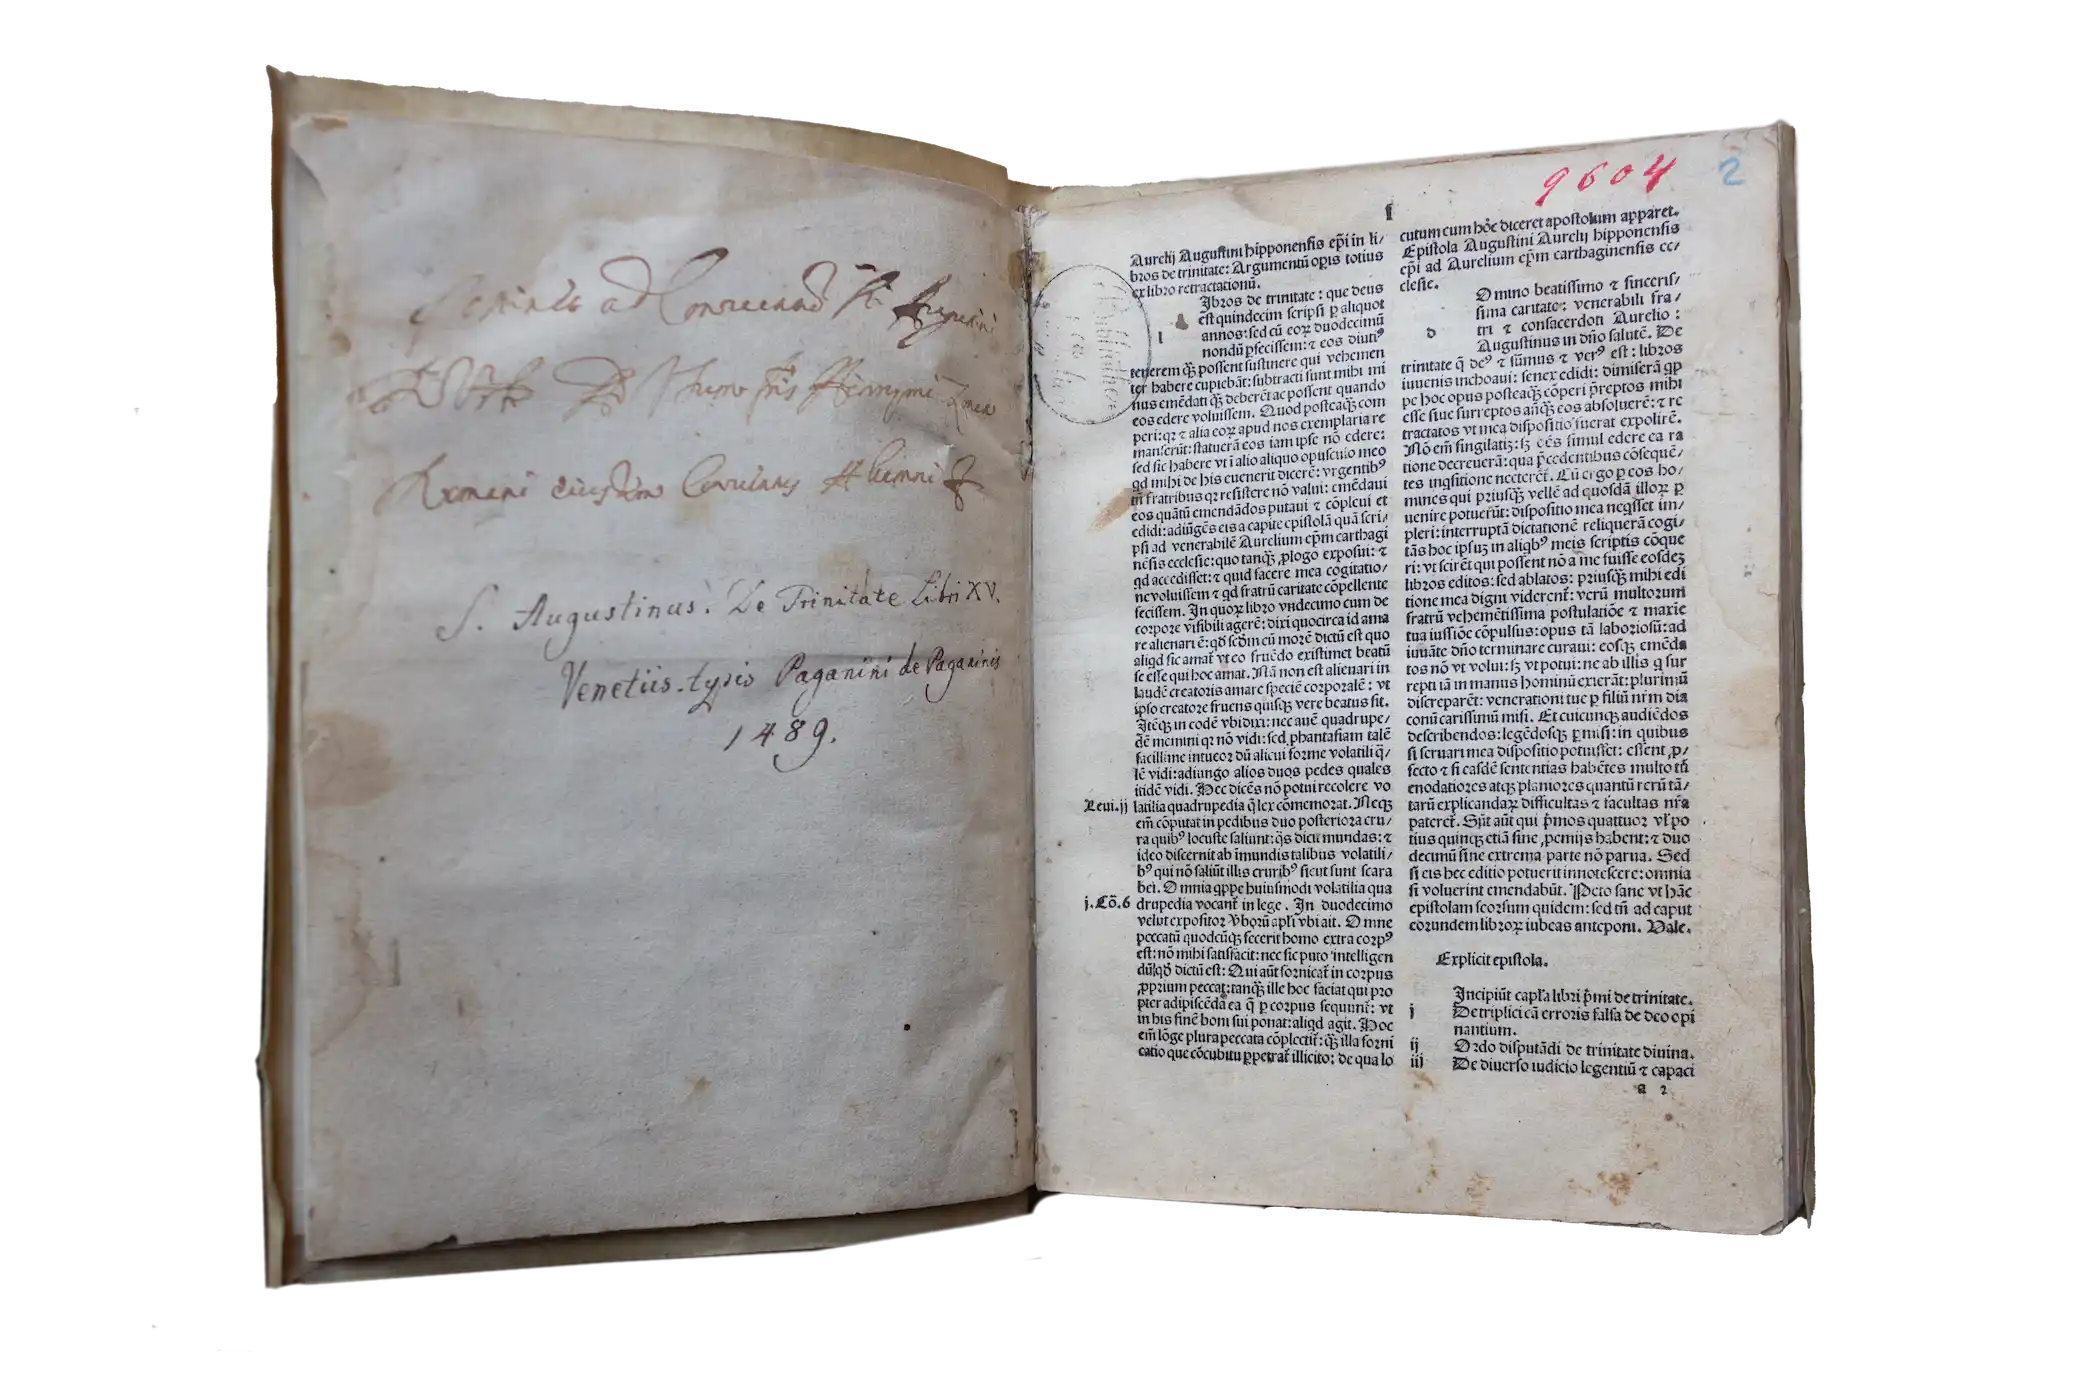 ad
Hieronymi
S. Augustinus. De Trinitate Libri XV.
Venetiis. typis Paganini de Paganinis
1489.
9604
2
1
Aurelij Augustini hipponensis ep̄i in li/
bros de trinitate: Argumentū oꝑis totius
ex libro retractationū.
Ibros de trinitate: que deus
l
est quindecim scripsi ꝑ aliquot
annos: sed cū eoꝝ duodecimū
nondū ꝑfecissem: ⁊ eos diutiꝰ
tenerem qꝫ possent sustinere qui vehemen
ter habere cupiebāt: subtracti sunt mihi mi
nus emēdati qꝫ deberēt ac possent quando
eos edere voluissem. Quod posteaqꝫ com
peri: qꝛ ⁊ alia eoꝝ apud nos exemplaria re
manserūt: statuerā eos iam ipse nō edere:
sed sic habere vt ī alio aliquo opusculo meo
qd mihi de his euenerit dicerē: vrgentibꝰ
tn̄ fratribus qꝛ resistere nō valui: emēdaui
eos quātū emendādos putaui ⁊ cōpleui et
edidi: adiūgēs eis a capite epistolā quā scri/
psi ad venerabilē Aurelium ep̄m carthagi
nēsis ecclesie: quo tanqꝫ ꝓlogo exposui: ⁊
qd accedisset: ⁊ quid facere mea cogitatio/
ne voluissem ⁊ qd fratrū caritate cōpellente
fecissem. In quoꝝ libro vndecimo cum de
corpore visibili agerē: dixi quocirca id ama
re alienari ē: qd̄ scd̄m eū morē dictū est quo
aliqd sic amat̄ vt eo fruēdo existimet beatū
se esse qui hoc amat. Nā non est alienari in
laudē creatoris amare speciē corporalē: vt
ipso creatore fruens quisqꝫ vere beatus sit.
Itēqꝫ in eodē vbi dixi: nec auē quadrupe/
dē memini qꝛ nō vidi: sed phantasiam talē
facillime intueor dū alicui forme volatili q̄/
lē vidi: adiungo alios duos pedes quales
itidē vidi. Hec dicēs nō potui recolere vo
Leui.ij
latilia quadrupedia q̄ lex cōmemorat. Neqꝫ
em̄ cōputat in pedibus duo posteriora cru/
ra quibꝰ locuste saliunt: q̄s dicit mundas: ⁊
ideo discernit ab īmundis talibus volatili/
bꝰ qui nō saliūt illis cruribꝰ sicut sunt scara
bei. Omnia qꝓpe huiusmodi volatilia qua
j.Cō.6
drupedia vocant̄ in lege. In duodecimo
velut expositoꝝ v̄boꝝ apl̄i vbi ait. Omne
peccatū quodcūqꝫ fecerit homo extra corpꝰ
est: nō mihi satisfacit: nec sic puto intelligen
dū: qd̄ dictū est: Qui aūt fornicat̄ in corpus
ꝓprium peccat: tanqꝫ ille hoc faciat qui pro
pter adipiscēda ea q̄ ꝑ corpus sequunt̄: vt
in his finē boni sui ponat: aliqd agit. Hoc
em̄ lōge plura peccata cōplectit̄: qꝫ illa forni
catio que cōcubitu ꝑpetrat̄ illicito: de qua lo
cutum cum hoc diceret apostolum apparet.
Epistola Augustini Aurelij hipponensis
ep̄i ad Aurelium ep̄m carthaginensis ec/
clesie.
Omino beatissimo ⁊ sinceris/
sima caritate: venerabili fra/
d
tri ⁊ consacerdoti Aurelio:
Augustinus in dn̄o salutē. De
trinitate q̄ deꝰ ⁊ sūmus ⁊ verꝰ est: libros
iuuenis inchoaui: senex edidi: dimiserā qꝓ
pe hoc opus posteaqꝫ cōperi p̄reptos mihi
esse siue surreptos anteqꝫ eos absoluerē: ⁊ re
tractatos vt mea dispositio fuerat expolirē.
Nō em̄ singilatim: sꝫ oēs simul edere ea ra
tione decreuerā: qua p̄cedentibus cōsequē/
tes inqsitione necterēt. Cū ergo ꝑ eos ho/
mines qui priusqꝫ vellē ad quosdā illoꝝ ꝑ
uenire potuerūt: dispositio mea neqsset im/
pleri: interruptā dictationē reliquerā cogi/
tās hoc ipsuꝫ in aliqbꝰ meis scriptis cōque
ri: vt scirēt qui possent nō a me fuisse eosdeꝫ
libros editos: sed ablatos: priusqꝫ mihi edi
tione mea digni viderent̄: verū multorum
fratrū vehemētissima postulatiōe ⁊ maxie
tua iussiōe cōpulsus: opus tā laboriosū: ad
iuuāte dn̄o terminare curaui: eosqꝫ emēda
tos nō vt volui: sꝫ vt potui: ne ab illis q sur
repti iā in manus hominū exierāt: plurimū
discreparēt: venerationi tue ꝑ filiū nr̄m dia
conū carissimū misi. Et cuicunqꝫ audiēdos
describendos: legēdosqꝫ ꝑmisi: in quibus
si seruari mea dispositio potuisset: essent ꝓ/
fecto ⁊ si easdē sententias habētes multo tn̄
enodatiores atqꝫ planiores quantū rerū tā/
tarū explicandaꝝ difficultas ⁊ facultas nr̄a
pateret̄. Sūt aūt qui p̄mos quattuor vl̓ po
tius quinqꝫ etiā sine ꝓemijs habent: ⁊ duo
decimū sine extrema parte nō parua. Sed
si eis hec editio potuerit innotescere: omnia
si voluerint emendabūt. Peto sane vt hāc
epistolam seorsum quidem: sed tn̄ ad caput
eorundem libroꝝ iubeas anteponi. Vale.
Explicit epistola.
Incipiūt capl̓a libri p̄mi de trinitate.
i De triplici cā erroris falsa de deo opi
nantium.
ij Ordo disputādi de trinitate diuina.
iij De diuerso iudicio legentiū ⁊ capaci
a 2